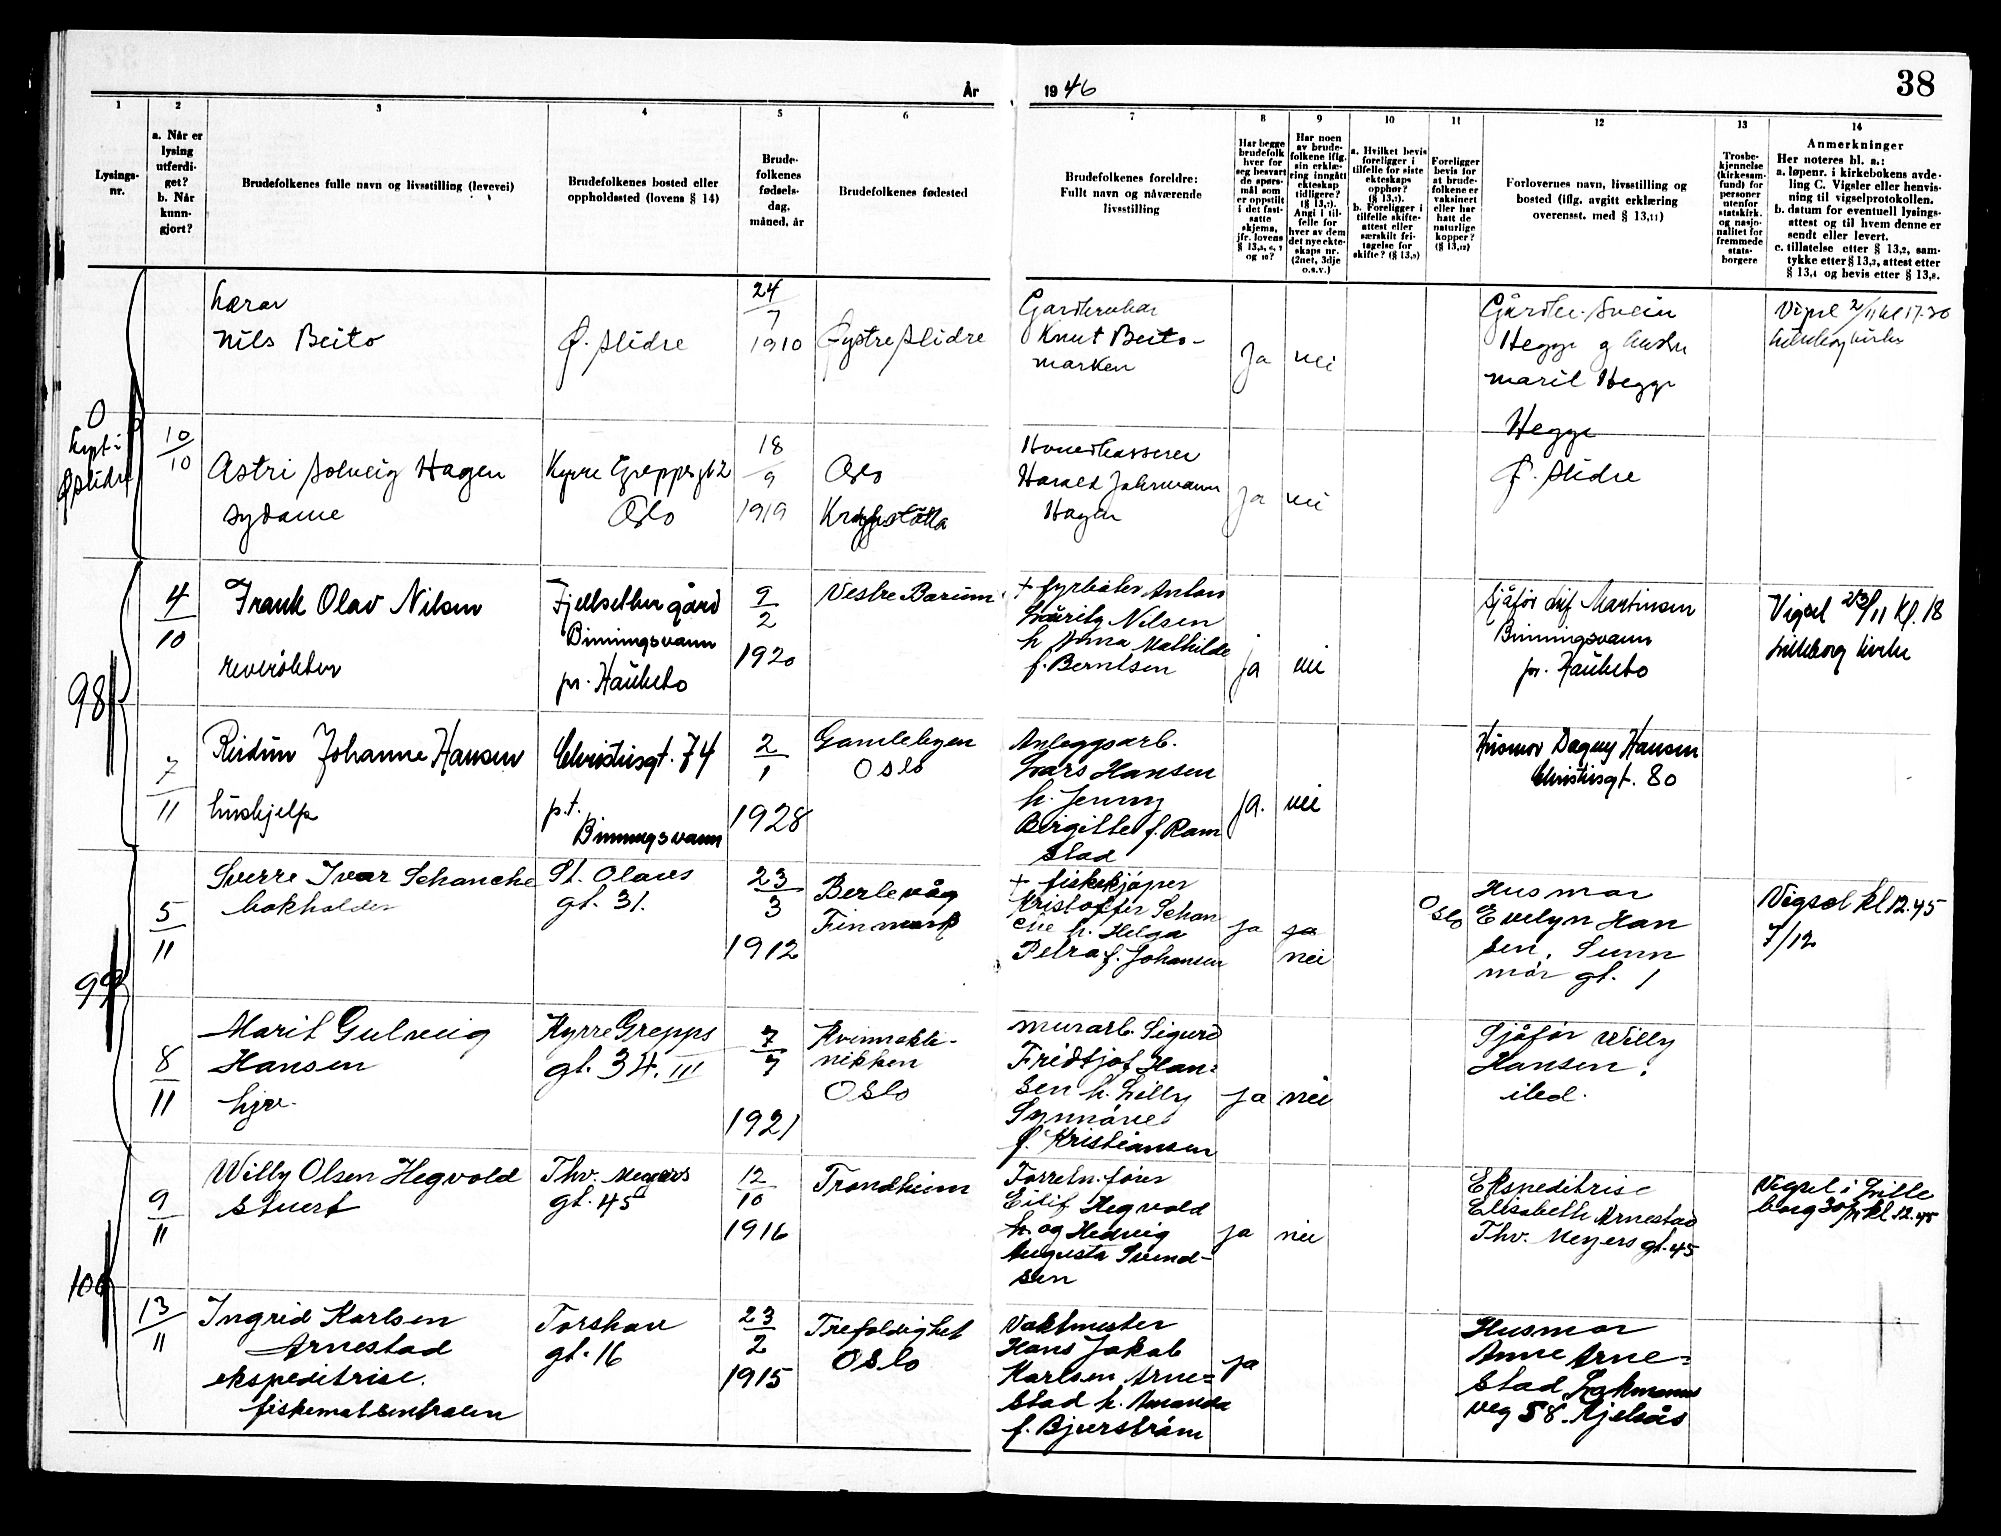 År 1946
38
1
Lysings-
nr.
2
a. Når er
lysing
utferdi-
get?
b. Når
kunn-
gjort?
3
Brudefolkenes fulle navn og livsstilling (levevei)
4
Brudefolkenes bosted eller
oppholdssted (lovens § 14)
5
Brude-
folkenes
fødsels-
dag,
måned, år
6
Brudefolkenes fødested
7
Brudefolkenes foreldre:
Fullt navn og nåværende
livsstilling
8
Har begge
brudefolk
hver for
seg besvart
de spørs-
mål som
er oppstilt
i det fast-
satte
skjema,
jfr. lovens
og 10?
9
Har noen
av brude-
folkene iflg.
sin erklæ-
ring inngått
ekteskap
tidligere?
Angi i til-
felle for
hver av dem
det nye ekte-
skaps nr.
(2net, 3dje
o.s.v.)
10
a. Hvilket bevis
foreligger i
tilfelle for siste
ekteskaps
opphør?
b. Foreligger i
tilfelle skifte-
attest eller
særskilt fri-
tagelse for
skifte? (§ 13,9)
11
Foreligger
bevis for
at brude-
folkene er
vaksinert
eller har
hatt de
naturlige
kopper?
(§ 13,12)
12
Forlovernes navn, livsstilling og
bosted (iflg. avgitt erklæring
overensst. med § 13,11)
13
Trosbe-
kjennelse
(kirkesam-
fund) for
personer
utenfor
statskirk.
og nasjo-
nalitet for
fremmede
stats-
borgere
14
Anmerkninger
Her noteres bl. a.:
a. løpenr. i kirkebokens avde-
ling C. Vigsler eller henvis-
ning til vigselprotokollen.
b. datum for eventuell lysings-
attest og til hvem denne er
sendt eller levert.
c. tillatelse etter § 13,2, sam-
tykke etter § 13,3, attest etter
§ 13,4 og bevis etter § 13,8.
0
Lyst i
Ø Slidre
Lærer
Nils Beito
Ø. Slidre
24/7
1910
Øystre Slidre
Gardbrukar
Knut Beito-
marken
Ja
nei
Gårdbr. Svein
Hegge og hustru
Marit Hegge
Hegge
Ø. Slidre
Vigsel 2/11 kl 17.30
Lilleborg kirke
10/10
Astri Solveig Hagen
sydame
Kyrre Greppsgt 2
Oslo
18/9
1919
Oslo
Harald
Hagen
Ja
nei
98
4/10
Frank Olav Nilsen
reverøkter
Fjellsether gård
Binningsvann
pr. Hauketo
9/2
1920
Vestre Bærum
+ fyrbøter Anton
Lauritz Nilsen
h Anna Mathilde
f. Berntsen
ja
nei
Sjåfør Leif Martinsen
Binningsvann
pr. Hauketo
Vigsel 23/11 kl. 18
Lilleborg kirke
7/11
Reidun Johanne Hansen
hushjelp
Christiesgt. 74
p.t.
Binningsvann
2/1
1928
Gamlebyen
Oslo
Anleggsarb.
Lars Hansen
h. Jenny
Birgitte f. Ram
stad
ja.
nei
Husmor Dagny Hansen
Christiesgt. 80
99
5/11
Sverre Ivar Schanche
bokholder
St. Olavs
gt. 31.
23/3
1912
Berlevåg
Finmark
+ fiskekjøper
Kristoffer Schan
che h. Helga
Petra f. Johansen
ja
ja
nei
Oslo
Husmor
Evelyn Han
sen, Sunn
mør gt. 1
Vigsel kl 12.45
7/12
8/11
Marit Gulveig
Hansen
hjv.
Kyrre Grepps
gt. 34. III
7/7
1921
Kvinnekli-
nikken
Oslo
murarb. Sigurd
Fridtjof Han=
sen h. Lilly
Synnøve
f. Kristiansen
ja
nei
Sjåfør Willy
Hansen,
ibid.
100
9/11
Willy Olsen Hegvold
stuert
Thv. Meyers
gt. 45
12/10
1916
Trondheim
Forretn.fører
Eilif Hegvold
h. og Hedvig
Augusta Svend-
sen
ja
nei
Ekspeditrise
Elisabeth Arnestad
Thv. Meyers gt. 45
Vigsel i Lille
borg 30/11 kl. 12.45
13/11
Ingrid Karlsen
Arnestad
ekspeditrise.
fiskematsentralen
Torshov
gt. 16
23/2
1915
Trefoldighet
Oslo
Vaktmester
Hans Jakob
Karlsen Arne=
stad h. Amanda
f. Bjurstrøm
ja
Husmor
Anne Arne=
stad Lakmanns
veg 58. Kjelsås